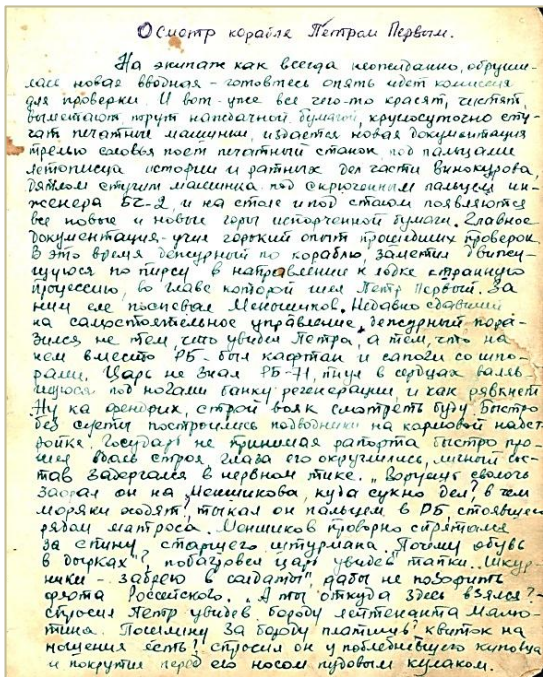 Осмотр корабля Петром Первым.
На экипаж как всегда неожиданно, обруши-
лась новая вводная - готовьтесь опять идет комиссия
для проверки. И вот - уже все чего-то красят, чистят,
выметают, жрут наждачной бумагой, круглосуточно сту-
чат печатные машинки, издается новая документация
трелью соловья поет печатный станок под пальцами
летописца истории и ратных дел части Винокурова,
дятлом стучит машинка под скрюченным пальцем ин-
женера БЧ-2, и на столе и под столом появляются
все новые и новые горы испорченной бумаги. Главное
документация - учил горький опыт прошедших проверок
В это время дежурный по кораблю, заметил движу-
щуюся по пирсу в направлении к лодке странную
процессию, во главе которой шел Петр Первый. За
ним еле поспевал Меньшиков. Недавно сдавший
на самостоятельное управление, дежурный пора-
зился не тем, что увидел Петра, а тем, что на
нем вместо РБ - был кафтан и сапоги со шпо-
рами. Царь не знал РБ-71, пнул в сердцах валяв-
шуюся под ногами банку регенерации, и как рявкнет
Ну ка фендрик, строй вояк смотреть буду. Быстро
без суеты построились подводники на кормовой надст-
ройке. Государь не принимая рапорта быстро про-
шел вдоль строя глаза его округлились, личный сос-
тав задергался в нервном тике. "Ворует сволочь
заорал он на Меншикова, куда сукно дел! в чем
моряки ходят, тыкал он пальцем в РБ стоявшего
рядом матроса. Меншиков проворно спрятался
за спину старшего штурмана. Почему обувь
в дырках"! побагровел царь увидев тапки. Шкур-
ники - забрею в солдаты" дабы не позорить
флота Российского. "А ты откуда здесь взялся?-
спросил Петр увидев бороду лейтенанта Малю-
тина. Пошлину за бороду платишь? квиток на
ношения есть! спросил он у побледневшего купонуа
и покрутил перед его носом пудовым кулаком.